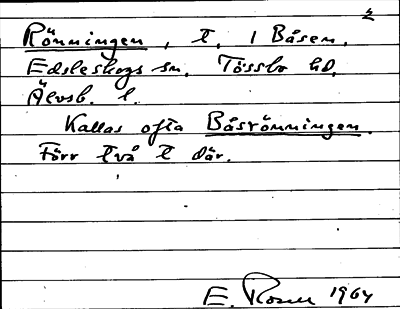 2
Rönningen, t. i Båsen.
Edsleskogs sn. Tössbo hd.
Älvsb. l.
Kallas ofta Båsrönningen.
Förr två t där.
E. Rosell 1964